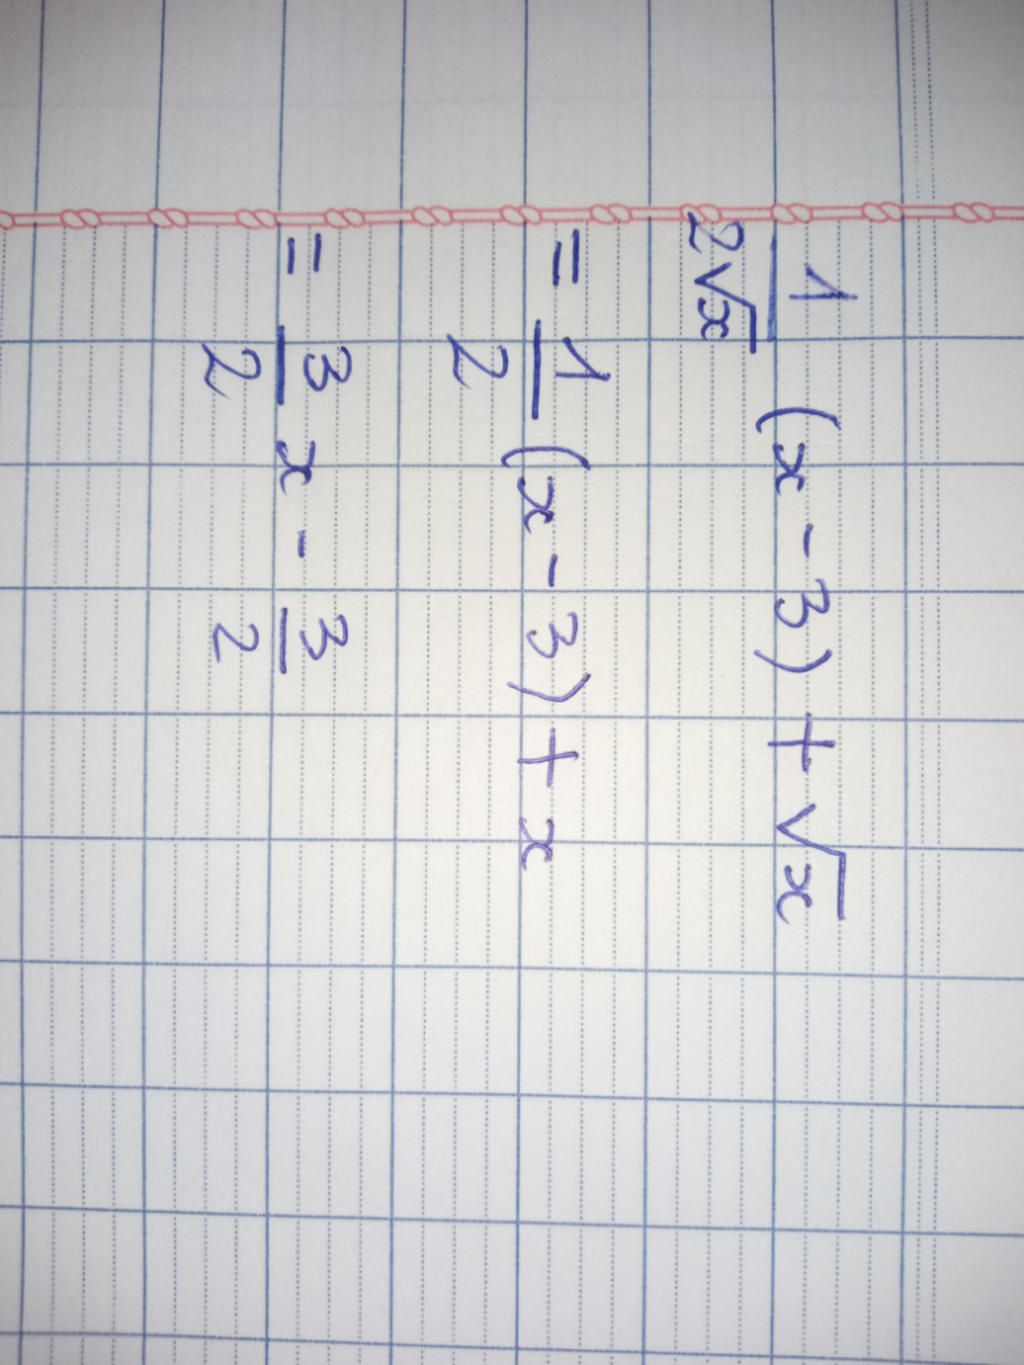 1/(2√x) (x - 3) + √x
= 1/2 (x - 3) + x
= 3/2 x - 3/2